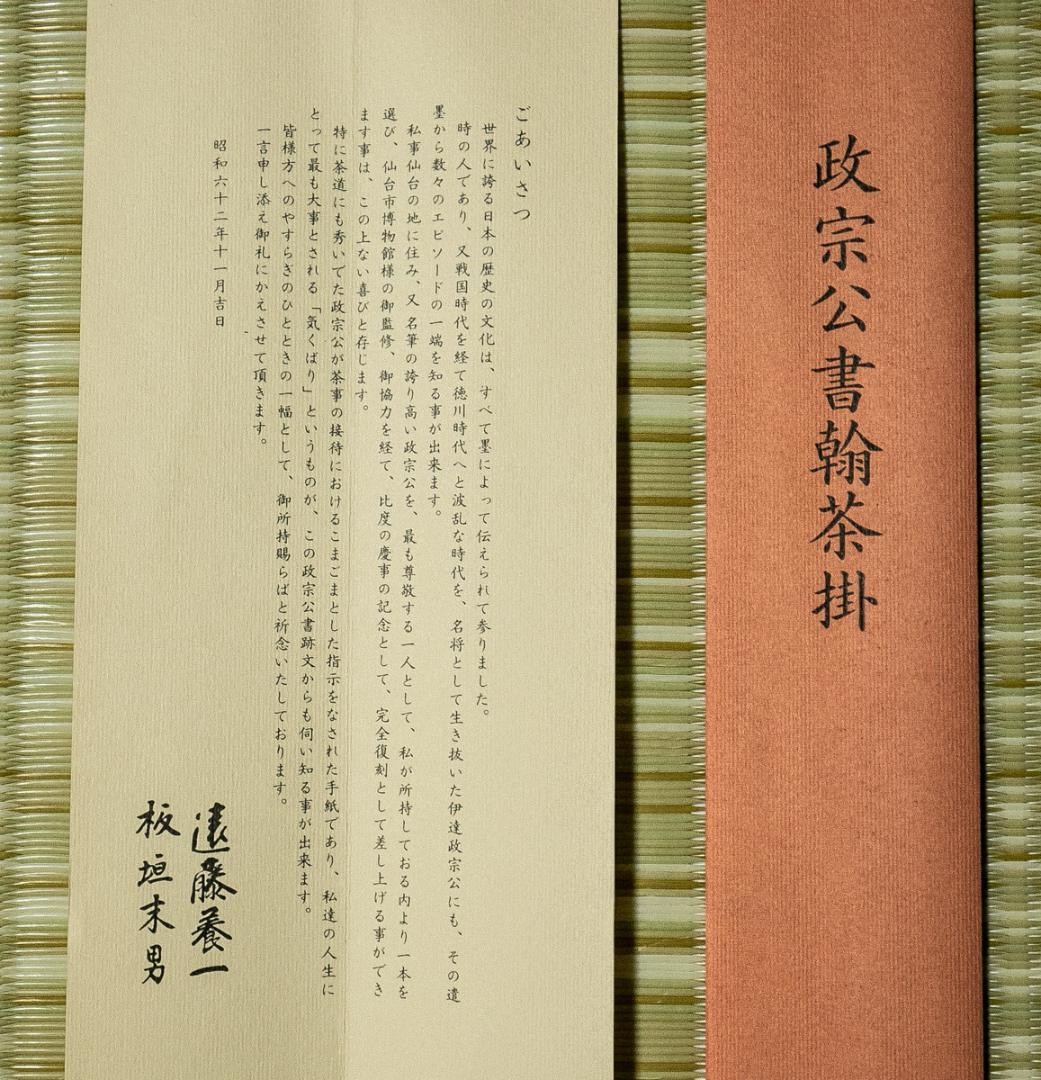 政宗公書翰茶掛
ごあいさつ
世界に誇る日本の歴史の文化は、すべて墨によって伝えられて参りました。
時の人であり、又戦国時代を経て徳川時代へと波乱な時代を、名将として生き抜いた伊達政宗公にも、その遺
墨から数々のエピソードの一端を知る事が出来ます。
私事仙台の地に住み、又名筆の誇り高い政宗公を、最も尊敬する一人として、私が所持しておる内より一本を
選び、仙台市博物館様の御監修、御協力を経て、比度の慶事の記念として、完全復刻として差し上げる事ができ
ます事は、この上ない喜びと存じます。
特に茶道にも秀いでた政宗公が茶事の接待におけるこまごまとした指示をなされた手紙であり、私達の人生に
とって最も大事とされる「気くばり」というものが、この政宗公書跡文からも伺い知る事が出来ます。
皆様方へのやすらぎのひとときの一幅として、御所持賜らばと祈念いたしております。
一言申し添え御礼にかえさせて頂きます。
昭和六十二年十一月吉日
遠藤養一
板垣末男